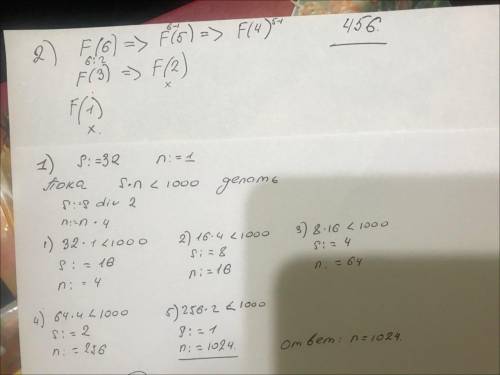 2) F(6) => F(5) => F(4) 456.
6-1 5-1
6:2
F(3) => F(2)
x
F(1)
x.
1) S:=32 n:=1
Пока S·n < 1000 делать
S:=S div 2
n:=n·4
1) 32·1<1000 2) 16·4<1000 3) 8·16<1000
S:=16 S:=8 S:=4
n:=4 n:=16 n:=64
4) 64·4<1000 5) 256·2<1000
S:=2 S:=1
n:=256 n:=1024. Ответ: n=1024.